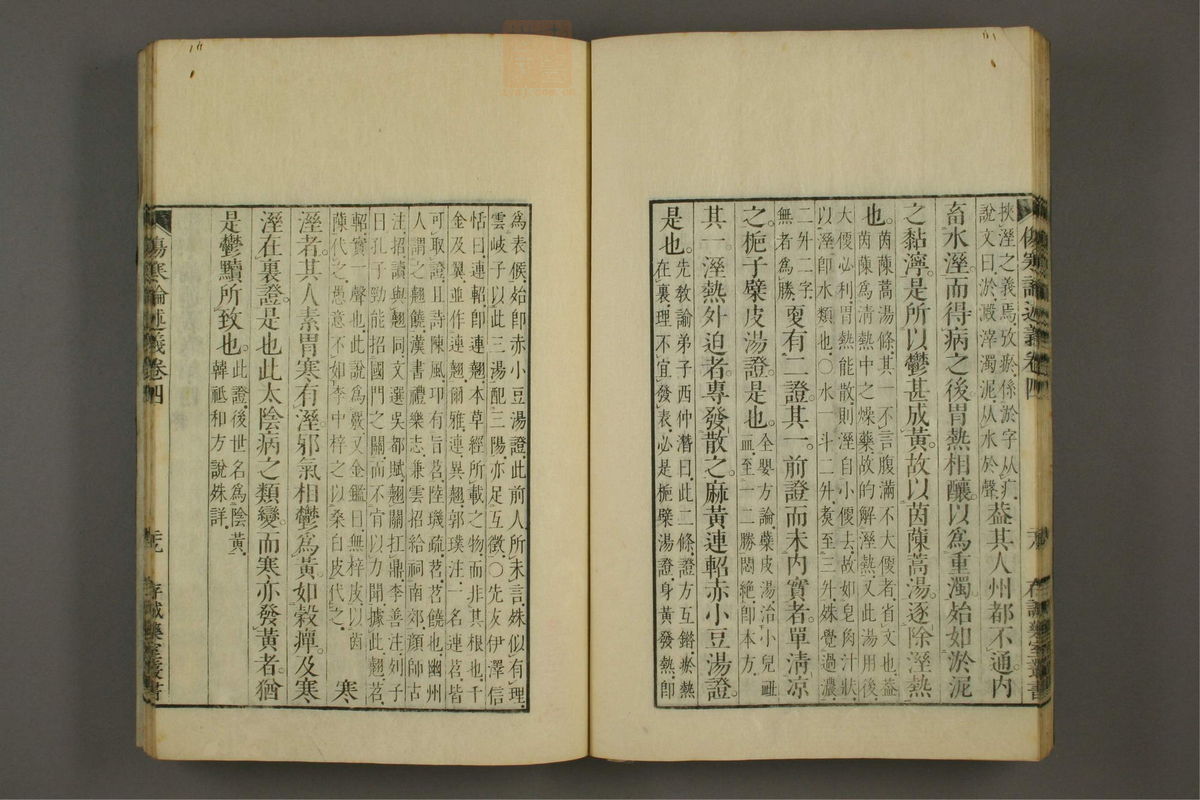 傷寒論述義卷四 存誠藥室叢書
挾溼之義焉攷瘀係淤字从疒
說文曰淤澱滓濁泥从水於聲
蓋其人州都不通內
畜水溼而得病之後胃熱相釀以爲重濁始如淤泥
之黏濘是所以鬱甚成黃故以茵蔯蒿湯逐除溼熱
也
茵蔯蒿湯條其一不言腹滿不大便者省文也蓋
茵蔯爲清熱中之燥藥故的解溼熱又此湯用後
大便必利胃熱能散則溼自小便去故如皂角汁狀
以溼卽水類也○水一斗二升煑至三升殊覺過濃
二升二字
無者爲勝
更有二證其一前證而未內實者單淸凉
之梔子蘗皮湯證是也
全嬰方論蘗皮湯治小兒衄
血至一二勝悶絕卽本方
其一溼熱外迫者專發散之麻黃連軺赤小豆湯證
是也
先敎諭弟子西仲潛曰此二條證方互錯瘀熱
在裏理不宜發表必是梔蘗湯證身黃發熱卽
爲表候始卽赤小豆湯證此前人所未言殊似有理
雲岐子以此三湯配三陽亦足互徵○先友伊澤信
恬曰連軺卽連翹本草經所載之物而非其根也千
金及翼並作連翹爾雅連異翹郭璞注一名連苕皆
可取證且詩陳風邛有旨苕陸璣疏苕苕饒也幽州
人謂之翹饒漢書禮樂志兼雲招給祠南郊顏師古
注招讀與翹同文選吳都賦翹關扛鼎李善注列子
曰孔子勁能招國門之關而不肯以力聞據此翹苕
軺實一聲也此說爲覈又金鑑曰無梓皮以茵
蔯代之愚意不如李中梓之以桑白皮代之
寒
溼者其人素胃寒有溼邪氣相鬱爲黃如穀癉及寒
溼在裏證是也此太陰病之類變而寒亦發黃者猶
是鬱黷所致也
此證後世名爲陰黃
韓祗和方說殊詳
傷寒論述義卷四 存誠藥室叢書